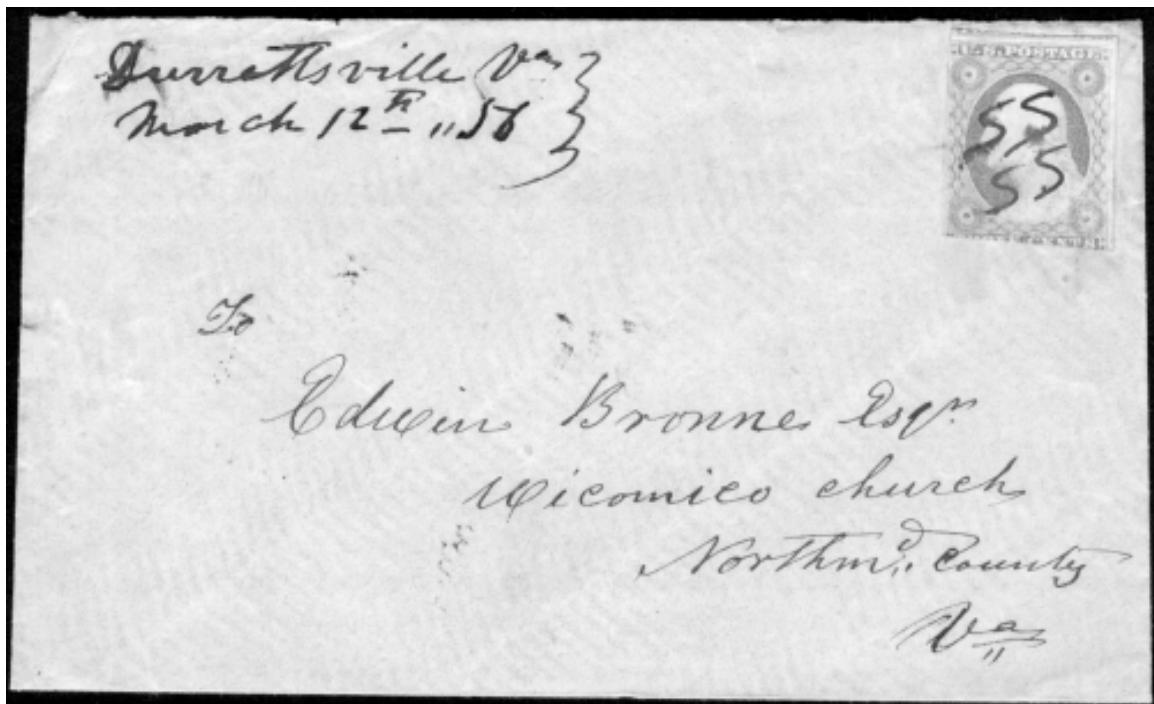 Durrettsville Va
March 12th "56
U.S. POSTAGE
To
Edwin Bronne Esqr
Wicomico church
Northmd. County
Va